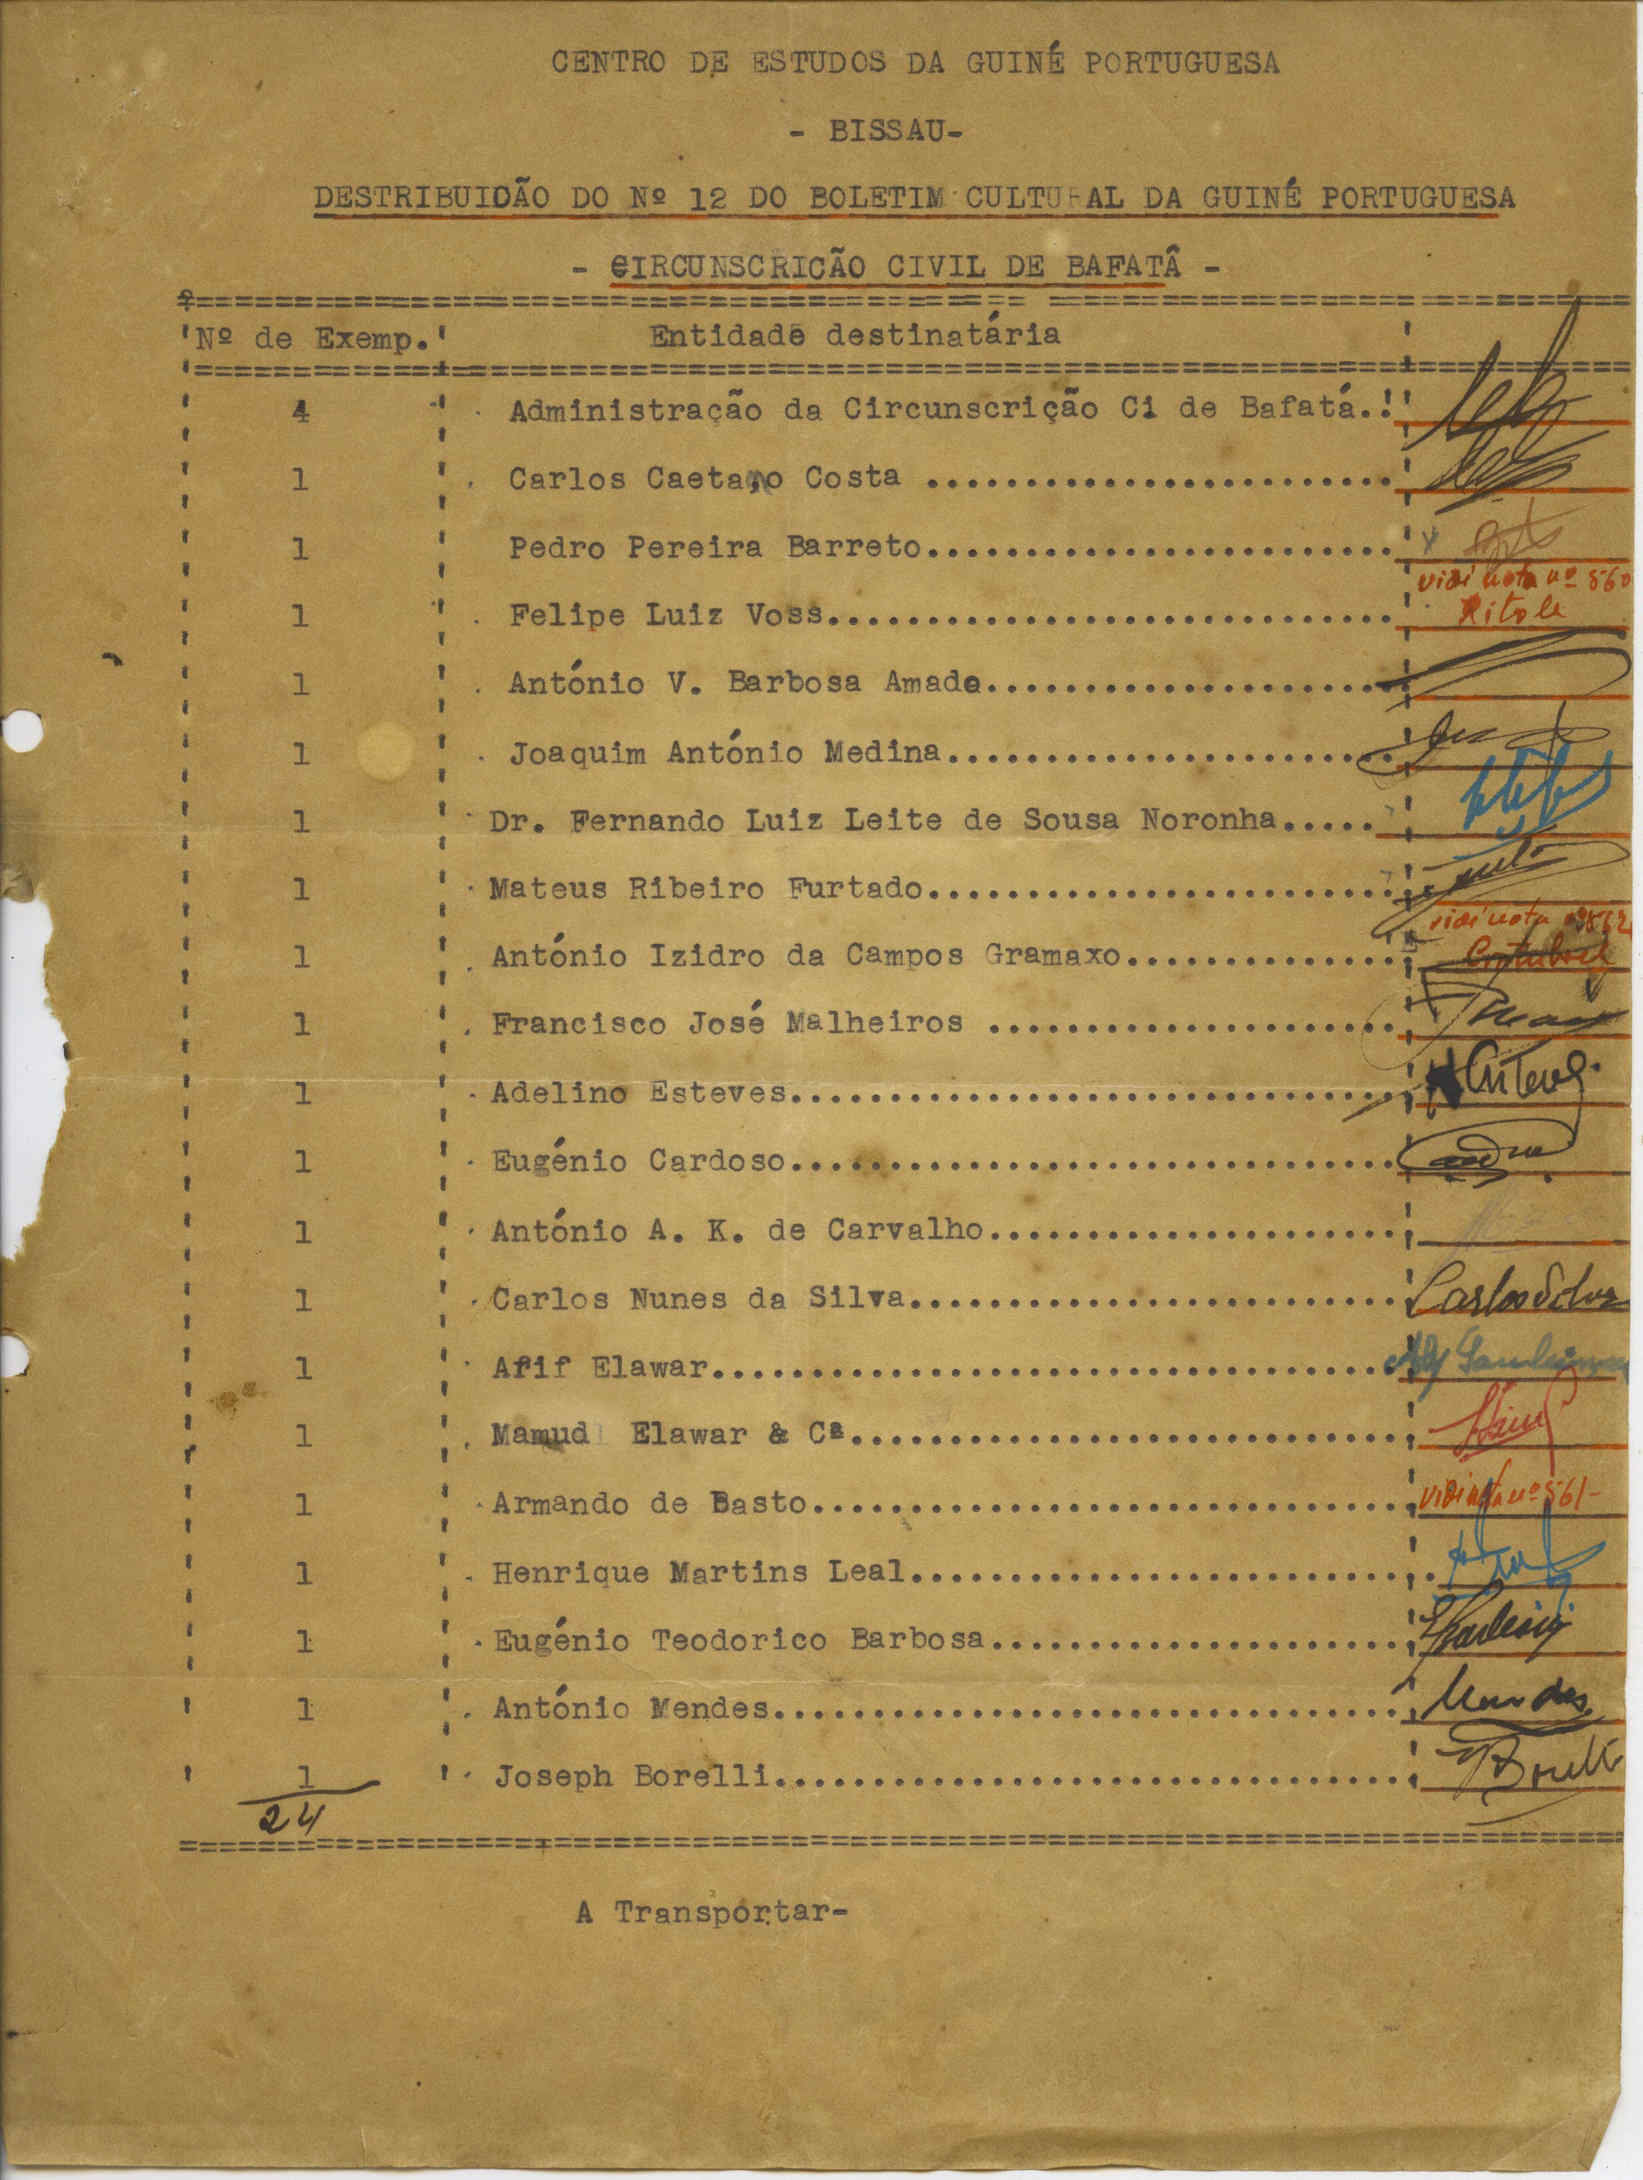 CENTRO DE ESTUDOS DA GUINÉ PORTUGUESA
- BISSAU-
DESTRIBUIDÃO DO Nº 12 DO BOLETIM CULTURAL DA GUINÉ PORTUGUESA
- CIRCUNSCRICÃO CIVIL DE BAFATÂ -
Nº de Exemp. Entidade destinatária
4 Administração da Circunscrição Ci de Bafatá.
1 Carlos Caetano Costa ........................
1 Pedro Pereira Barreto........................
vidi nota nº 560
1 Felipe Luiz Voss.............................
1 António V. Barbosa Amado.....................
1 Joaquim António Medina.......................
1 Dr. Fernando Luiz Leite de Sousa Noronha.....
1 Mateus Ribeiro Furtado........................
vidi nota
1 António Izidro da Campos Gramaxo..............
1 Francisco José Malheiros .....................
1 Adelino Esteves............................... Esteves
1 Eugénio Cardoso...............................
1 António A. K. de Carvalho.....................
1 Carlos Nunes da Silva......................... Carlos Silva
1 Afif Elawar...................................
1 Mamud Elawar & Cª.............................
1 Armando de Basto.............................. vidi nota nº 561-
1 Henrique Martins Leal.........................
1 Eugénio Teodorico Barbosa.....................
1 António Mendes................................ Mendes
1 Joseph Borelli................................ Borelli
24
A Transportar-